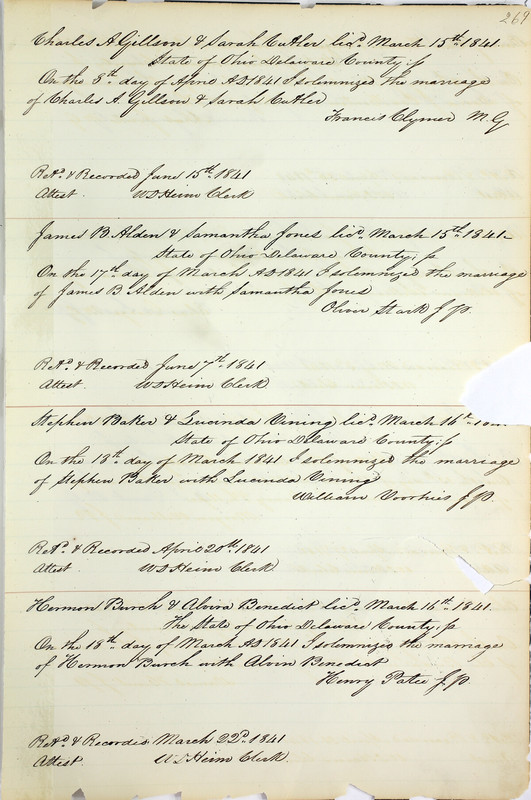 264
Charles A Gillson & Sarah Cuther licd March 15th 1841
State of Ohio Delaware County, ss
On the 8th day of April AD 1841 I solemnized the marriage
of Charles A. Gillson & Sarah Cuther
Francis Clymer M.G
Retd & Recorded June 15th 1841
Attest W D Heim Clerk
James B. Alden & Samantha Jones licd March 15th 1841
State of Ohio Delaware County, ss
On the 17th day of March AD 1841 I solemnized the marriage
of James B Alden with Samantha Jones
Oliver Stark J P.
Retd & Recorded June 7th 1841
Attest. W D Heim Clerk
Stephen Baker & Lucinda Vining licd March 16th
State of Ohio Delaware County, ss
On the 18th day of March 1841 I solemnized the marriage
of Stephen Baker with Lucinda Vining
William Voorhis J P.
Retd & Recorded April 20th 1841
Attest W D Heim Clerk.
Hermon Burch & Alvira Benedict licd March 16th 1841.
The State of Ohio Delaware County, ss
On the 18th day of March AD 1841 I solemnized the marriage
of Hermon Burch with Alvin Benedict
Henry Patee J P
Retd & Recorded March 22d 1841
Attest. W D Heim Clerk.